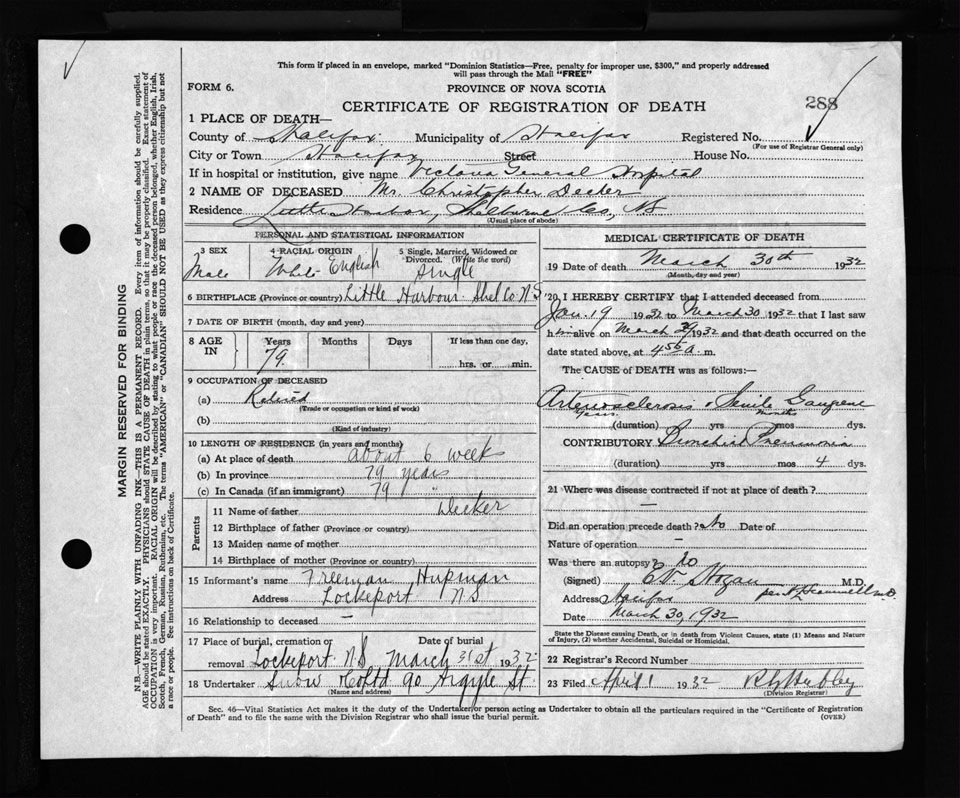 This form if placed in an envelope, marked "Dominion Statistics—Free, penalty for improper use, $300," and properly addressed
will pass through the Mail "FREE"
FORM 6.
PROVINCE OF NOVA SCOTIA
CERTIFICATE OF REGISTRATION OF DEATH
288
1 PLACE OF DEATH—
County of Halifax. Municipality of Halifax Registered No.
(For use of Registrar General only)
City or Town Halifax Street House No.
If in hospital or institution, give name Victoria General Hospital
2 NAME OF DECEASED Mr. Christopher Decker
Residence Little Harbor, Shelburne Co, NS
(Usual place of abode)
PERSONAL AND STATISTICAL INFORMATION
3 SEX 4 RACIAL ORIGIN 5 Single, Married, Widowed or Divorced. (Write the word)
Male White English Single
6 BIRTHPLACE (Province or country) Little Harbour Shel Co N.S
7 DATE OF BIRTH (month, day and year)
8 AGE IN Years Months Days If less than one day,
79. hrs. or min.
9 OCCUPATION OF DECEASED
(a) Retired
(Trade or occupation or kind of work)
(b)
(Kind of industry)
10 LENGTH OF RESIDENCE (in years and months)
(a) At place of death about 6 weeks
(b) In province 79 years
(c) In Canada (if an immigrant) 79 "
Parents
11 Name of father Decker
12 Birthplace of father (Province or country)
13 Maiden name of mother
14 Birthplace of mother (Province or country)
15 Informant's name Freeman Hupman
Address Lockeport NS
16 Relationship to deceased —
17 Place of burial, cremation or removal Date of burial
Lockeport NS March 31st 1932
18 Undertaker Snow Co Ltd 90 Argyle St.
(Name and address)
MEDICAL CERTIFICATE OF DEATH
19 Date of death March 30th 1932
(Month, day and year)
20 I HEREBY CERTIFY that I attended deceased from
Jan. 19 1932 to March 30 1932 that I last saw
him alive on March 1932 and that death occurred on the
date stated above, at a. m.
The CAUSE of DEATH was as follows:—
Arteriosclerosis Senile Gangrene
(duration) yrs mos dys.
CONTRIBUTORY Bronchial Pneumonia
(duration) yrs mos 4 dys.
21 Where was disease contracted if not at place of death?
—
Did an operation precede death? No Date of
Nature of operation —
Was there an autopsy? no
(Signed) Hogan M.D.
Address Halifax
Date March 30, 1932
State the Disease causing Death, or in death from Violent Causes, state (1) Means and Nature
of Injury, (2) whether Accidental, Suicidal or Homicidal.
22 Registrar's Record Number
23 Filed April 1 1932
(Division Registrar)
Sec. 46—Vital Statistics Act makes it the duty of the Undertaker or person acting as Undertaker to obtain all the particulars required in the "Certificate of Registration
of Death" and to file the same with the Division Registrar who shall issue the burial permit.
(OVER)
MARGIN RESERVED FOR BINDING
N.B—WRITE PLAINLY WITH UNFADING INK—THIS IS A PERMANENT RECORD. Every item of information should be carefully supplied.
AGE should be stated EXACTLY. PHYSICIANS should STATE CAUSE OF DEATH in plain terms, so that it may be properly classified. Exact statement of
OCCUPATION is very important. RACIAL ORIGIN will be described by stating to what people or race the deceased person belonged, whether English, Irish,
Scotch, French, German, Russian, Ruthenian, etc. The terms "AMERICAN" or "CANADIAN" SHOULD NOT BE USED as they express citizenship but not
a race or people. See instructions on back of Certificate.